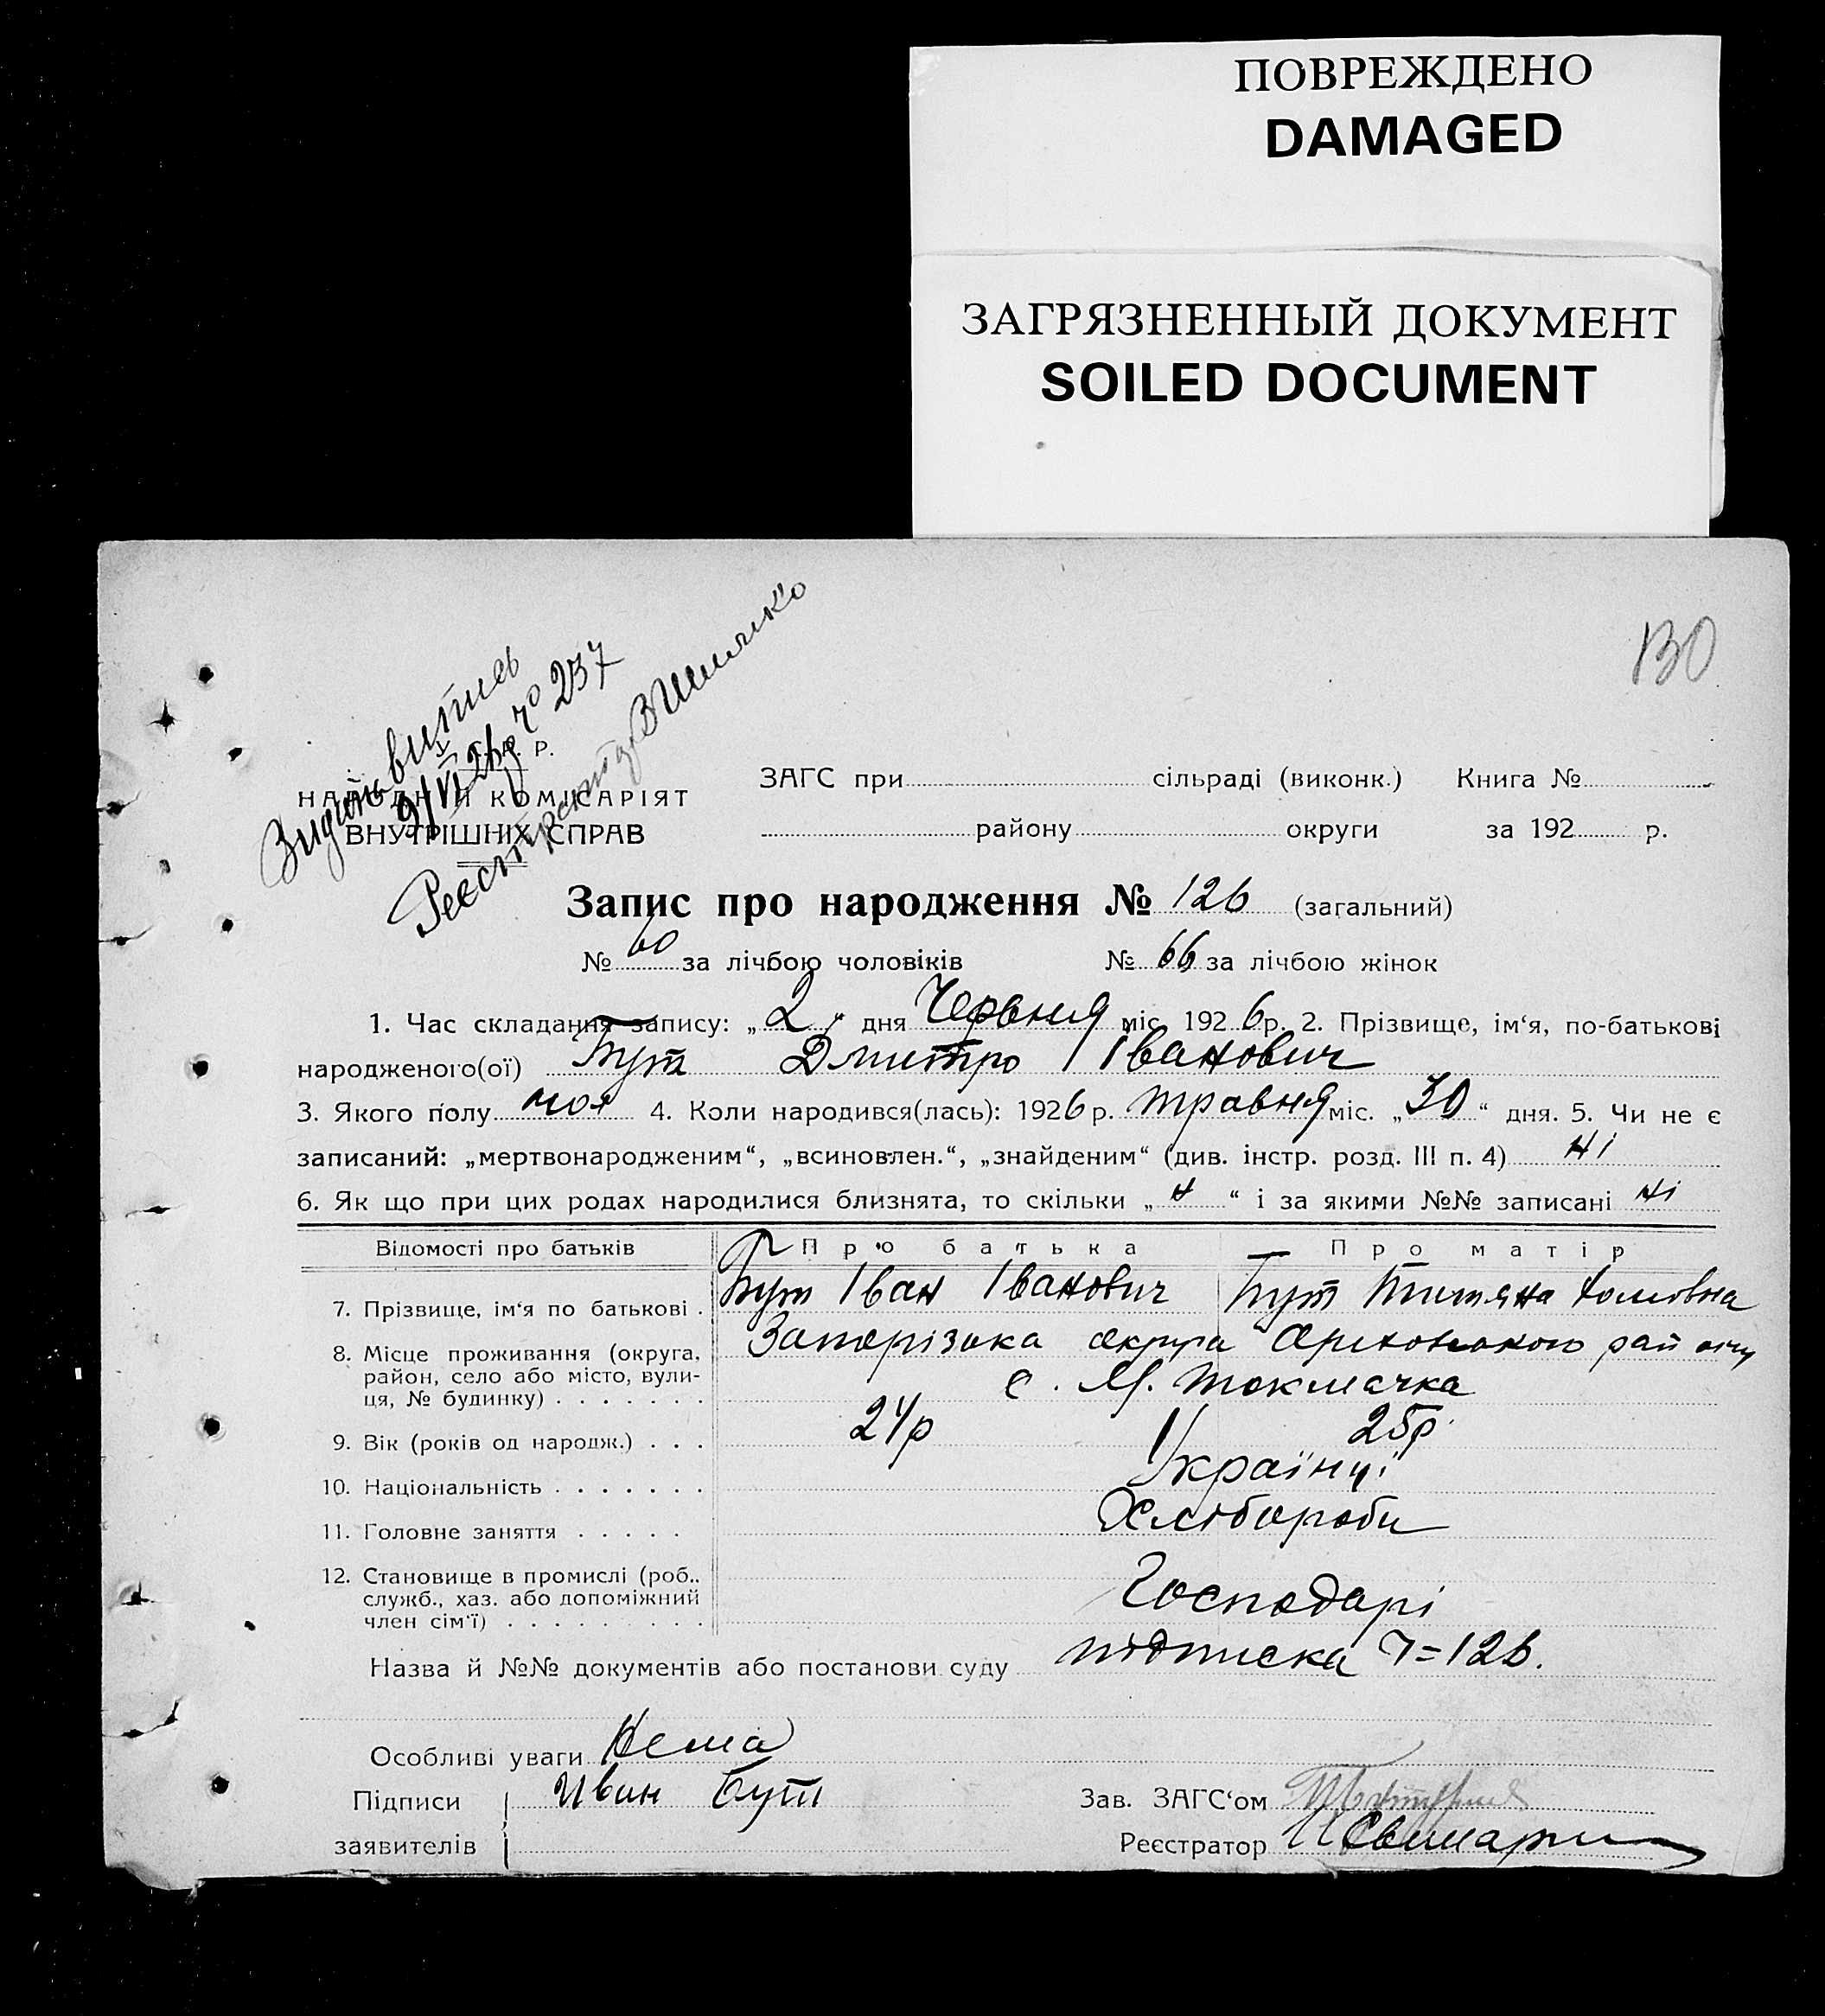 ПОВРЕЖДЕНО
DAMAGED
ЗАГРЯЗНЕННЫЙ ДОКУМЕНТ
SOILED DOCUMENT
130
витись
№ 237
Р.
НАРОДНІЙ КОМІСАРІЯТ
ВНУТРІШНІХ СПРАВ
Реєстратор
ЗАГС при сільраді (виконк.) Книга №
району округи за 192 р.
Запис про народження № 126 (загальний)
№ 60 за лічбою чоловіків № 66 за лічбою жінок
1. Час складання запису: „2" дня Червня міс. 1926 р. 2. Прізвище, ім'я, по-батькові
народженого(ої) Бут Дмитро Іванович
3. Якого полу 4. Коли народився(лась): 1926 р. травня міс. „30" дня. 5. Чи не є
записаний: „мертвонародженим", „всиновлен.", „знайденим" (див. інстр. розд. III п. 4) Ні
6. Як що при цих родах народилися близнята, то скільки „н" і за якими №№ записані Ні
Відомості про батьків Про батька Про матір
7. Прізвище, ім'я по батькові . Бут Іван Іванович Бут
8. Місце проживання (округа, район, село або місто, вулиця, № будинку) . . . . . . . Запорізька округа Оріховського району
с. М. Токмачка
9. Вік (років од народж.) . . . 24р 25р.
10. Національність . . . . . . . Українці
11. Головне заняття . . . . . Хлібороби
12. Становище в промислі (роб., служб., хаз. або допоміжний член сім'ї) . . . . . . . . . Господарі
Назва й №№ документів або постанови суду підписка Ч=126.
Особливі уваги Нема
Підписи Иван Бут Зав. ЗАГС'ом
заявителів Реєстратор